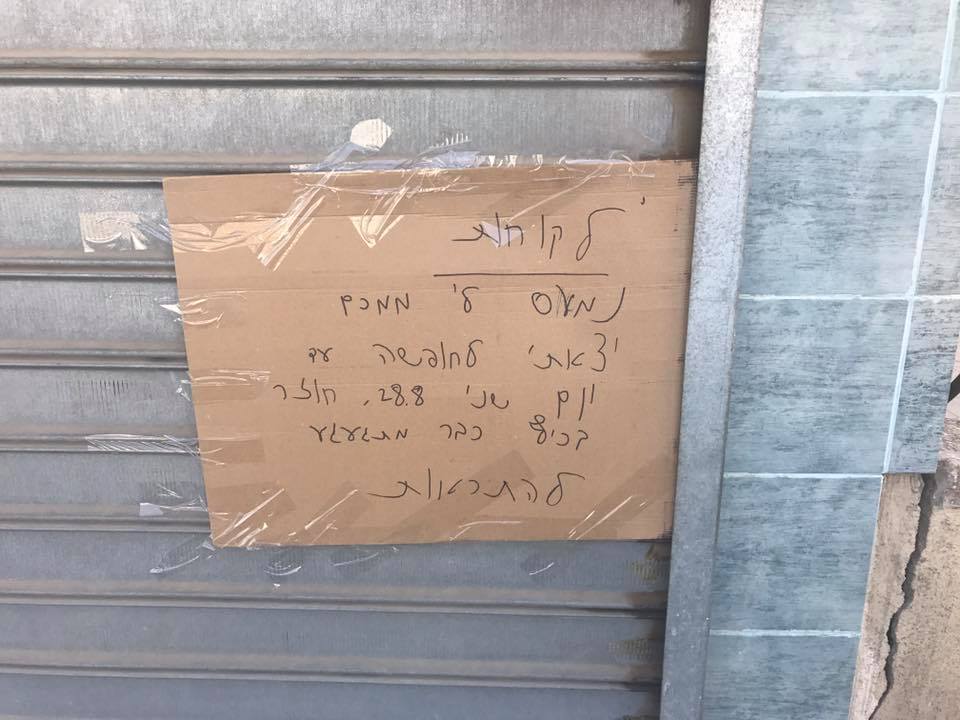 לקוחות
נמאס לי ממכם
יצאתי לחופשה עד
יום שני 28.8, חוזר
בכיף כבר מתגעגע
להתראות